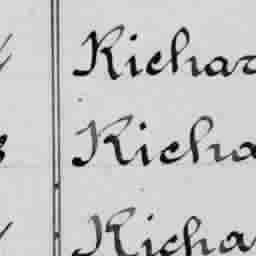 Richar
Richa
Richa